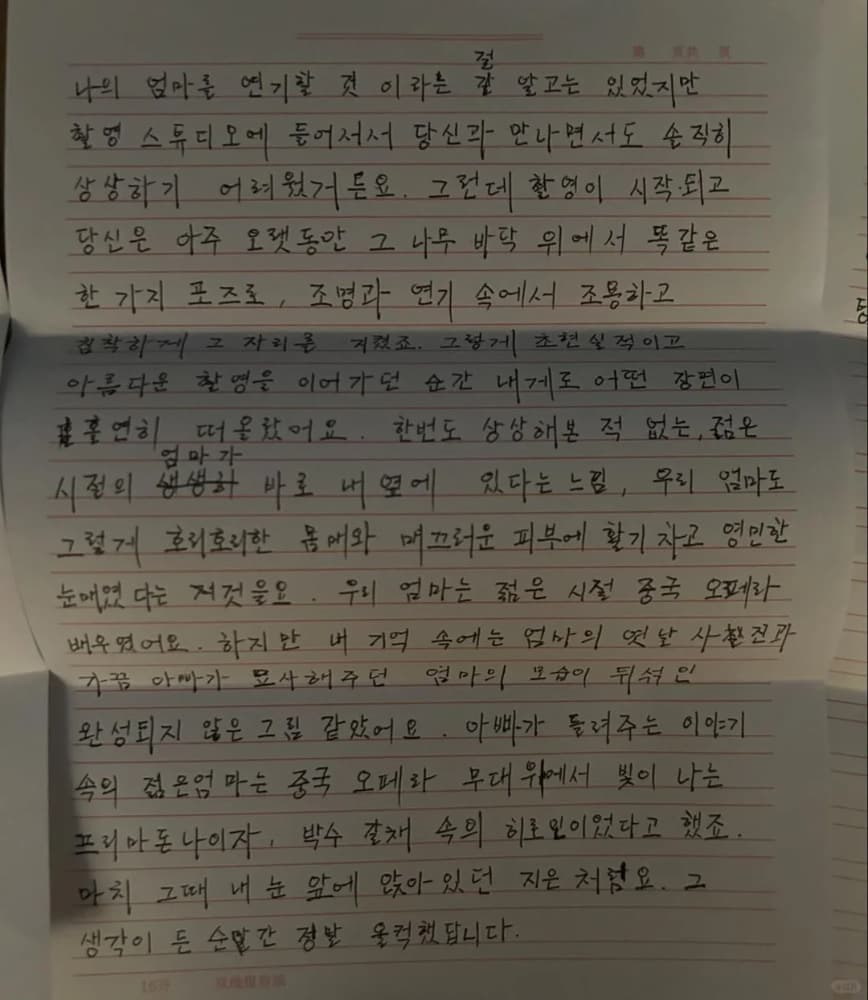 절
나의 엄마를 연기할 것 이라는 걸 알고는 있었지만
촬영 스튜디오에 들어서서 당신과 만나면서도 솔직히
상상하기 어려웠거든요. 그런데 촬영이 시작되고
당신은 아주 오랫동안 그 나무 바닥 위에서 똑같은
한 가지 포즈로, 조명과 연기 속에서 조용하고
침착하게 그 자리를 지켰죠. 그렇게 초현실적이고
아름다운 촬영을 이어가던 순간 내게로 어떤 장면이
홀연히 떠올랐어요. 한번도 상상해본 적 없는, 젊은
엄마가
시절의 생생하 바로 내 옆에 있다는 느낌, 우리 엄마도
그렇게 호리호리한 몸매와 매끄러운 피부에 활기차고 영민한
눈매였다는 저것을요. 우리 엄마는 젊은 시절 중국 오페라
배우였어요. 하지만 내 기억 속에는 엄마의 옛날 사진과
가끔 아빠가 묘사해주던 엄마의 모습이 뒤섞인
완성되지 않은 그림 같았어요. 아빠가 들려주는 이야기
속의 젊은엄마는 중국 오페라 무대 위에서 빛이 나는
프리마돈나이자, 박수 갈채 속의 히로인이었다고 했죠.
마치 그때 내 눈 앞에 앉아있던 지은 처럼요. 그
생각이 든 순간 정말 울컥했답니다.